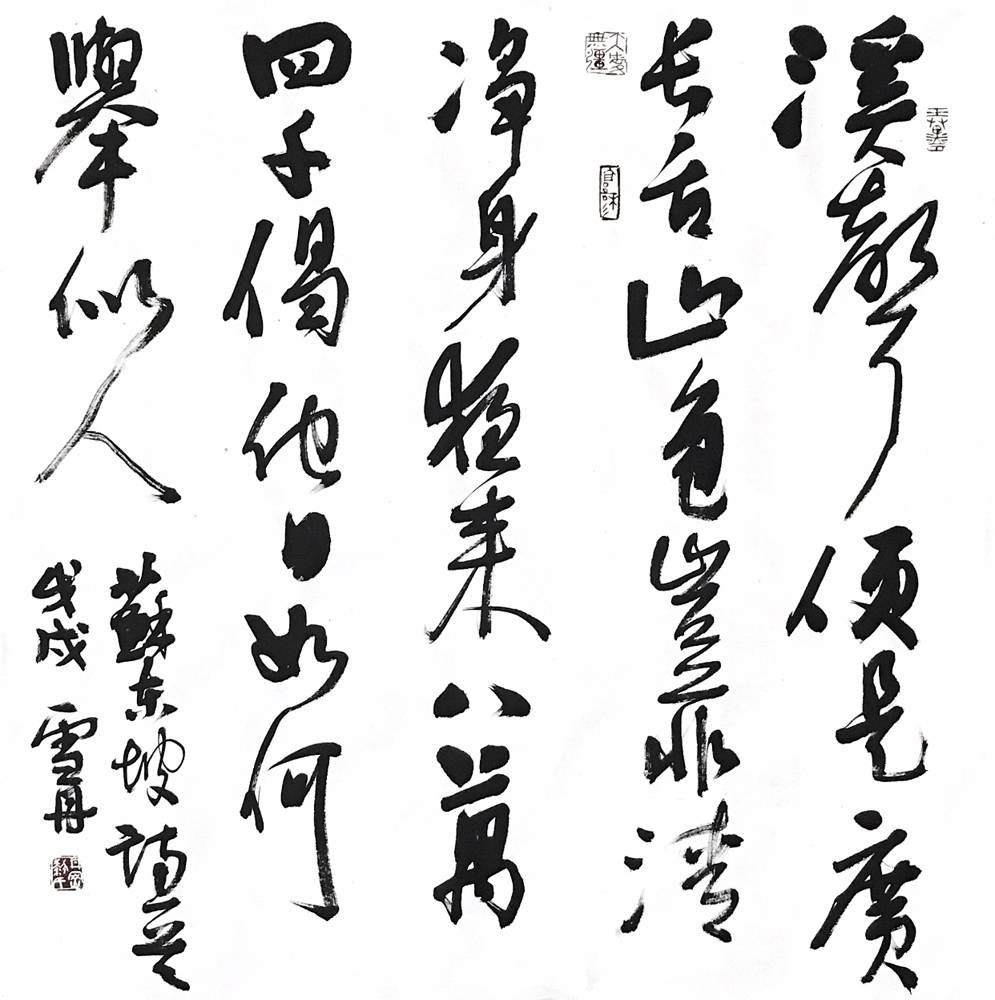 溪聲便是廣
長舌山色豈非清
净身夜來八萬
四千偈他日如何
舉似人
蘇東坡詩
戊戌 雪